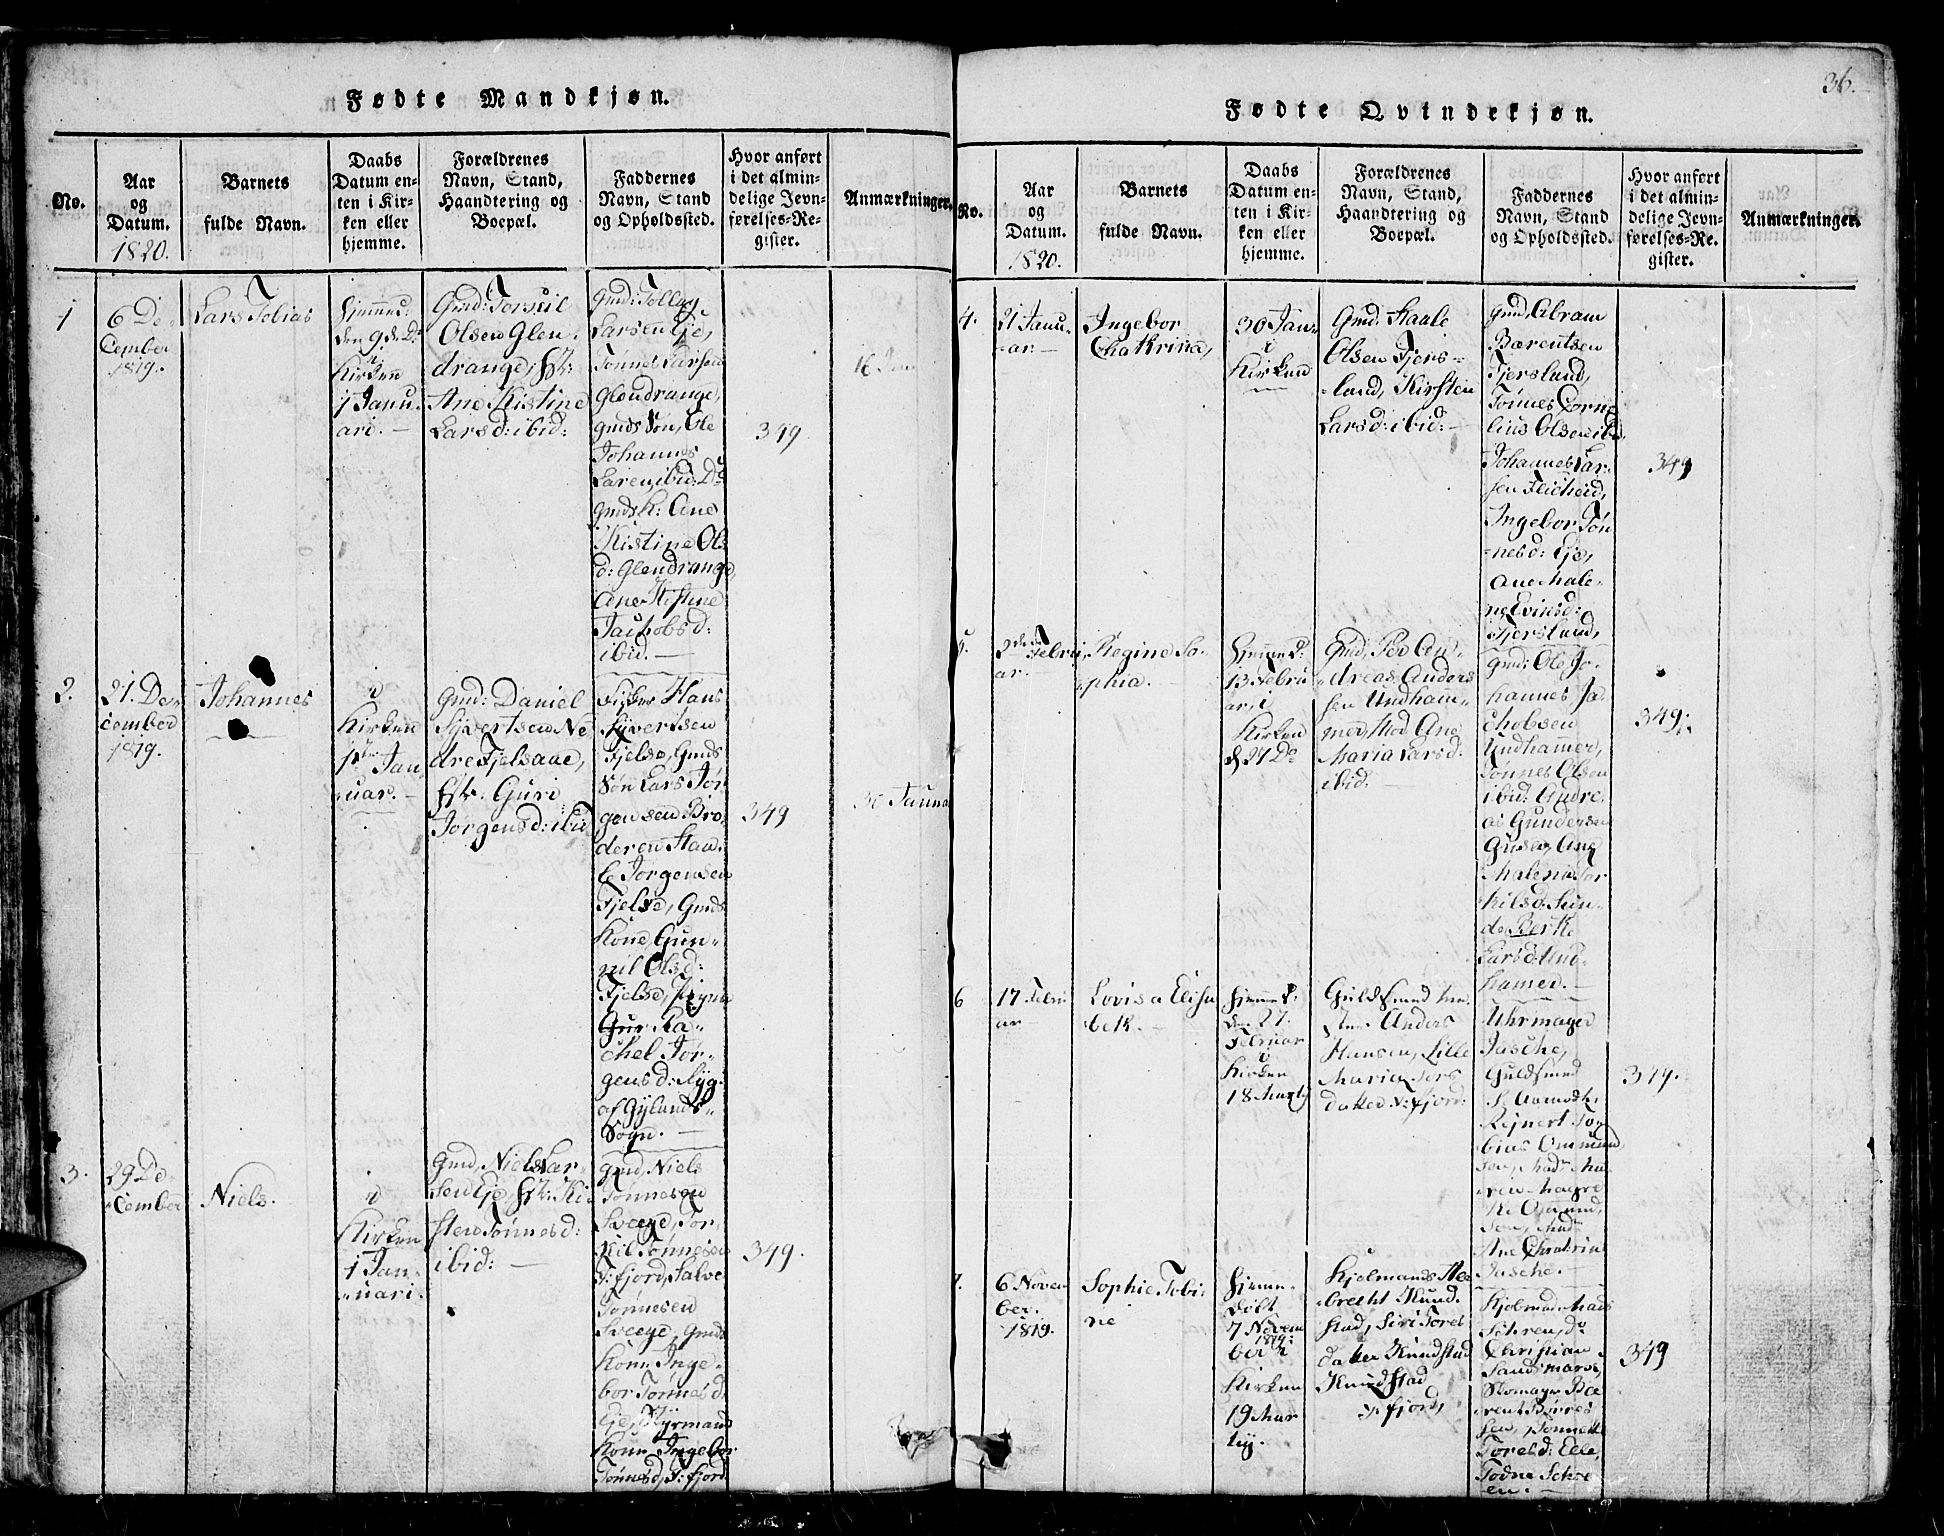 36.
Fødte Mandkjøn.
No.
Aar
og
Datum.
1820.
Barnets
fulde Navn.
Daabs
Datum en-
ten i Kir-
ken eller
hjemme.
Forældrenes
Navn, Stand,
Haandtering og
Boepæl.
Faddernes
Navn, Stand
og Opholdssted.
Hvor anført
i det almin-
delige Jevn-
førelses-Re-
gister.
Anmærkninger.
1
6 De-
cember
1819.
Lars Tobias
hjemme d:
den 9 d: Do
i
Kirken
1 Janu-
ari. —
Gmd: Torkil
Olsen Glen-
drange, Hst:
Ane Kistine
Larsd: ibid:
Gmd: Tollag
Larsen Eje,
Tønnes Larsen
Glendrange,
gmds Søn, Ole
Johannes
Larsen ibid: Do
gmds K: Ane
Kistine Ols
d: Glendrange,
Ane Kistine
Jachobsd:
ibid. —
349
16 Jan
2.
21. De-
cember
1819.
Johannes
i
Kirken
1ste Jan-
uar. —
Gmd: Daniel
Syvertsen Ne
dre Fjelsaae,
Hst: Guri
Jørgensd: ibid
Fisker Hans
Syvertsen
Fjelse, Gmds
Søn Lars Jør
gensen Bro-
deren Staa-
le Jørgensen
Fjelse, Gmds
Kone, Gun-
nil Olsd:
Fjelse, Pigen
Gur Ra-
chel Jør-
gensd: Ryg-
af Gylands-
Sogn. —
349
30 Januar
3.
29 De-
cember
Niels.
i
Kirken
1 Jan-
uari.
Gmd, Niels Lar-
sen Eje, Hst: Ki-
sten Tønnesd:
ibid: —
Gmd, Niels
Tønnesen
Sveege, Tor-
kil Tønnesen
F:fjord, Salve
Tønnesen
Sveege, Gmds
Kone Inge-
bor Tønnesd
Eje, Styrmand
Kone Ingebor
Tønnesd, F:fjord
349.
Fødte Qvindekjøn.
No.
Aar
og
Datum.
1820.
Barnets
fulde Navn.
Daabs
Datum en-
ten i Kir-
ken eller
hjemme.
Forældrenes
Navn, Stand,
Haandtering og
Boepæl.
Faddernes
Navn, Stand
og Opholdssted.
Hvor anført
i det almin-
delige Jevn-
førelses-Re-
gister.
Anmærkninger.
4.
21 Janu-
ar —
Ingebor
Chatrina,
30 Jan-
i
Kirken
Gmd. Staale
Olsen Fjers-
land, Kirsten
Larsd: ibid: —
Gmd, Abram
Bærentsen
Fjersland,
Tønnes Corne
lius Olsen ibid
Johannes Lar-
sen Fleiheid,
Ingebor Tøn
nesd: Eje,
Ane Male-
ne Evinsd:
Fjersland,
349
5.
Febru
ar. —
Regine So-
phia. —
hjemme d:
13 Febru
ar, i
Kirken
d 27 Do
Gmd, Peo An-
dreas Anders
sen Undham-
mer, Mod Ane
Maria Larsd:
ibid. —
Gmd: Ole Jo-
hannes Ja-
chobsen
Undhamer,
Tønnes Olsen
ibid: Andre-
as Gundersen
Ane
Malenia Tor
kilsd: Sun-
de Berthe
Larsd: Und-
hamer. —
349.
6
17 Febru
ar —
Lovisa Elisa
beth. —
hjemme d:
den 27.
Februar
i
Kirken
18 Marty
Guldsmed
Anders
Hansen, Lille
Maria Tors
datter F:fjord:
Uhrmager
Jasche,
Guldsmed
Reinert To-
bias Ommund
sen, Mad: Ma-
ren Magre
the Omund
sen, Mad:
Ane Chatrin
Jasche. —
349.
7.
6 Novem
ber.
1819.
Sophie Tobi-
ne
hjemme-
døbt
7 Novem
ber 1819:
i
Kirken
19 Mar
ty.
Kjølmands Ale
brecht Knud-
stad, Siri Torel
datter Knudstad
Knudstad
F:fjord,
Kjøbmd: Mads
Schren, Do
Christian
Sandsmark,
Skomager Be
rent Børres
sen, Tønnette
Torelsd: Elle,
Todne Schre
en. —
349